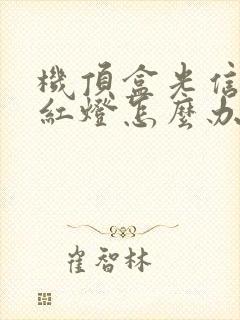 機頂盒光信
紅燈怎麼办
崔智林